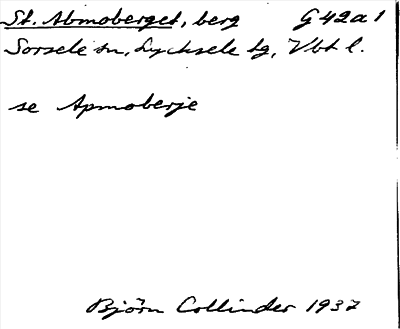 St. Abmoberget, berg G 42a1
Sorsele sn, Lycksele tg, Vbt l.
se Apmoberje
Björn Collinder 1937